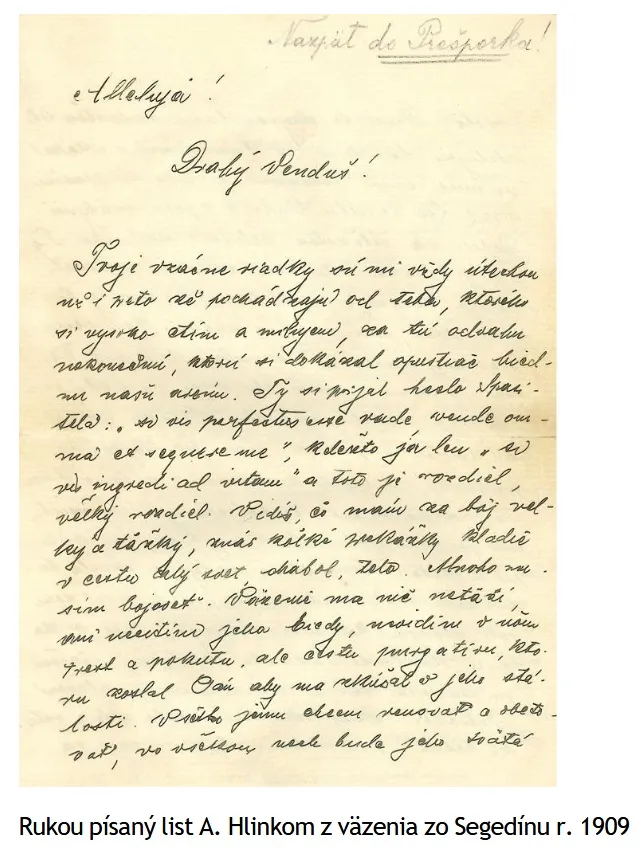 Nazpät do Prešporka!
Alleluja!
Drahý Venduš!
Tvoje vzácne riadky sú mi vždy útechou
už i preto že pochádzajú od teba, ktorého
si vysoko ctím a milujem, za tú odvahu
nekonečnú, ktorú si dokázal opustiac bied-
nu našu arénu. Ty si prijal heslo Spasi-
teľa: „si vis perfectus esse vade vende om-
nia et sequere me", kdežto ja len „si
vis ingredi ad vitam" a toto je rozdiel,
veľký rozdiel. Vidíš, čo mám za boj veľ-
ký a ťažký, znáš koľké prekážky kladie
v cestu celý svet, diabol, telo. Mnoho mu-
sím bojovať. Väzenie ma nič netáží,
ani necítim jeho biedy, nevidím v ňom
trest a pokutu, ale cestu purgatívu, kto-
rú zoslal Pán aby ma zkúšal v jeho stá-
losti. Všetko jemu chcem venovať a obeto-
vať, vo všetkom nech bude jeho svätá
Rukou písaný list A. Hlinkom z väzenia zo Segedínu r. 1909